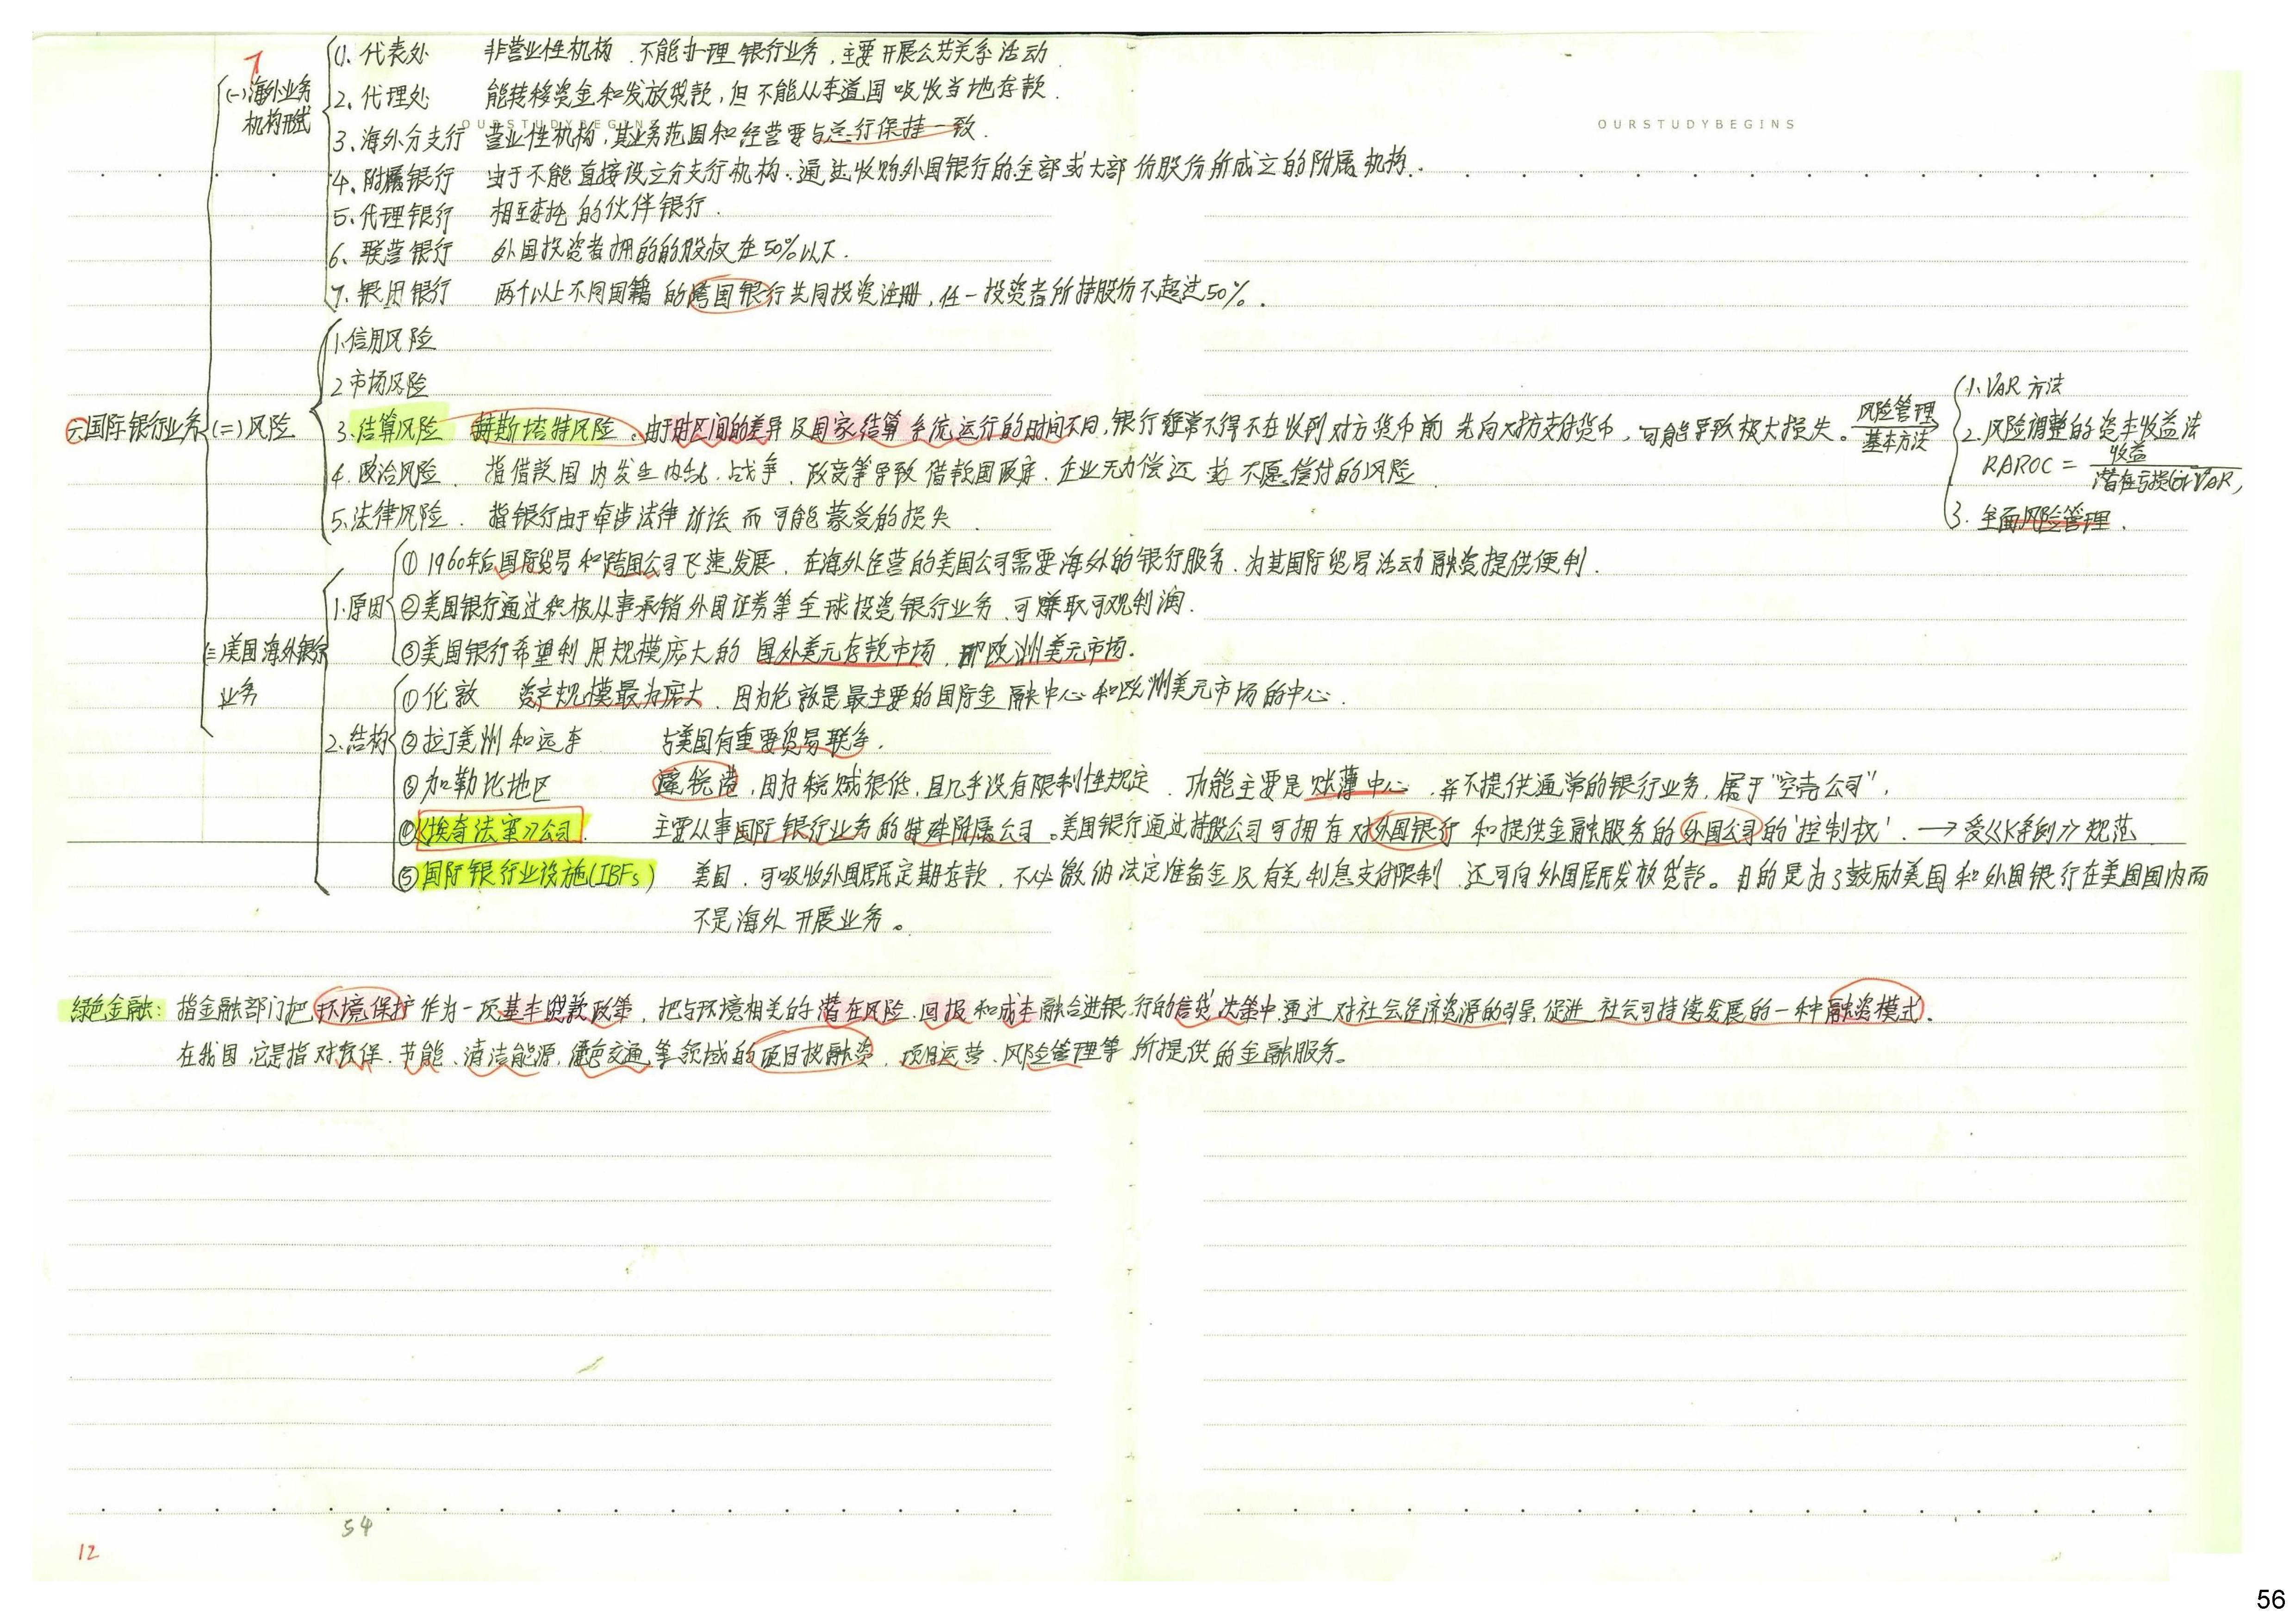 1. 代表处 非营业性机构、不能办理银行业务，主要开展公共关系活动
(一)海外业务
机构形式
2. 代理处 能转移资金和发放贷款，但不能从东道国吸收当地存款．
OURSTUDYBEGINS
OURSTUDYBEGINS
3. 海外分支行 营业性机构，其业务范围和经营要与总行保持一致．
4. 附属银行 由于不能直接设立分支行机构、通过收购外国银行的全部或大部份股份所成立的附属机构．
5. 代理银行 相互委托的伙伴银行．
6. 联营银行 外国投资者拥的的股权在50%以下．
7. 银团银行 两个以上不同国籍的跨国银行共同投资注册，任一投资者所持股份不超过50%．
六国际银行业务
(二)风险
1.信用风险
2 市场风险
3.结算风险 赫斯塔特风险。由于时区间的差异及国家结算系统运行的时间不同，银行经常不得不在收到对方货币前先向对方支付货币，可能导致极大损失。
风险管理
基本方法
1. VAR 方法
2. 风险调整的资本收益法
RAROC = 收益
潜在亏损(或VAR)
3. 全面风险管理．
4. 政治风险． 指借款国内发生内乱、战争、政变等导致借款国政府、企业无力偿还或不愿偿付的风险
5.法律风险． 指银行由于牵涉法律诉讼而可能蒙受的损失．
三美国海外银行
业务
1.原因
① 1960年后国际贸易和跨国公司飞速发展，在海外经营的美国公司需要海外的银行服务，为其国际贸易活动融资提供便利．
②美国银行通过积极从事承销外国证券等全球投资银行业务，可赚取可观利润．
③美国银行希望利用规模庞大的国外美元存款市场，即欧洲美元市场．
2.结构
①伦敦 资产规模最为庞大，因为伦敦是最主要的国际金融中心和欧洲美元市场的中心．
②拉丁美洲和远东 与美国有重要贸易联系．
③加勒比地区 避税港，因为税赋很低，且几乎没有限制性规定．功能主要是账薄中心，并不提供通常的银行业务，属于"空壳公司"．
④《埃奇法案》公司． 主要从事国际银行业务的特殊附属公司。美国银行通过持股公司可拥有对外国银行和提供金融服务的外国公司的'控制权'．→受《K条例》规范
⑤国际银行业设施(IBFs) 美国，可吸收外国居民定期存款，不必缴纳法定准备金及有关利息支付限制，还可向外国居民发放贷款。目的是为了鼓励美国和外国银行在美国国内而
不是海外开展业务。
绿色金融：指金融部门把环境保护作为一项基本贷款政策，把与环境相关的潜在风险、回报和成本融合进银行的信贷决策中，通过对社会经济资源的引导，促进社会可持续发展的一种融资模式．
在我国，它是指对环保、节能、清洁能源、绿色交通等领域的项目投融资、项目运营、风险管理等所提供的金融服务。
54
12
56